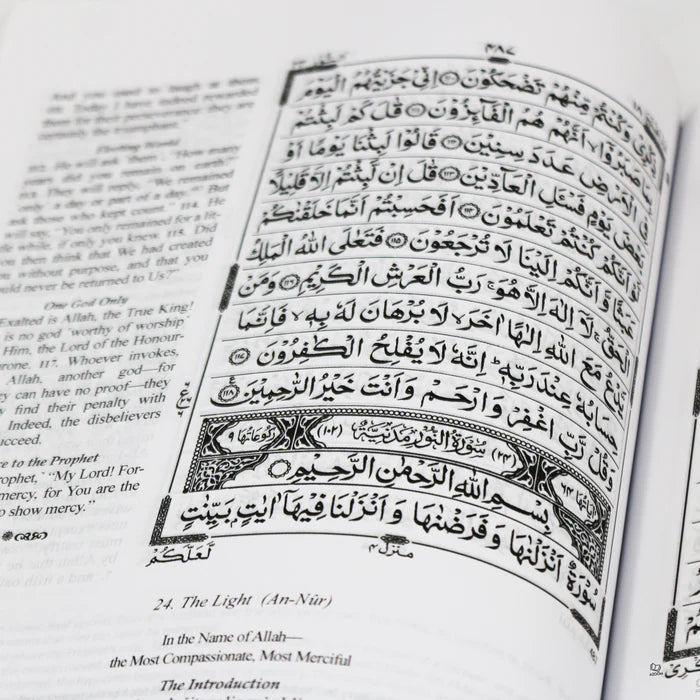 And you used to laugh at them.
111. Today I have indeed rewarded
them for their perseverance: they are
certainly the triumphant."
Fleeting World
112. He will ask ˹them˺, "How many
years did you remain on earth?"
113. They will reply, "We remained
˹only˺ a day or part of a day. But
ask those who kept count." 114. He
will say, "You only remained for a lit-
tle while, if only you knew. 115. Did
you then think that We had created
you without purpose, and that you
would never be returned to Us?"
One God Only
Exalted is Allah, the True King!
is no god ˹worthy of worship˺
Him, the Lord of the Honour-
rone. 117. Whoever invokes,
Allah, another god—for
they can have no proof—they
find their penalty with
Indeed, the disbelievers
succeed.
to the Prophet
prophet,˺ "My Lord! For-
mercy, for You are the
show mercy."
٤٨٧
ذِكْرِیْ وَكُنْتُمْ مِّنْهُمْ تَضْحَكُوْنَ ۝۱۱۰ اِنِّیْ جَزَیْتُهُمُ الْیَوْمَ
بِمَا صَبَرُوْۤا اَنَّهُمْ هُمُ الْفَآىِٕزُوْنَ ۝۱۱۱ قٰلَ كَمْ لَبِثْتُمْ
فِی الْاَرْضِ عَدَدَ سِنِیْنَ ۝۱۱۲ قَالُوْا لَبِثْنَا یَوْمًا اَوْ
بَعْضَ یَوْمٍ فَسْـَٔلِ الْعَآدِّیْنَ ۝۱۱۳ قٰلَ اِنْ لَّبِثْتُمْ اِلَّا قَلِیْلًا
لَّوْ اَنَّكُمْ كُنْتُمْ تَعْلَمُوْنَ ۝۱۱۴ اَفَحَسِبْتُمْ اَنَّمَا خَلَقْنٰكُمْ
عَبَثًا وَّاَنَّكُمْ اِلَیْنَا لَا تُرْجَعُوْنَ ۝۱۱۵ فَتَعٰلَی اللّٰهُ الْمَلِكُ
الْحَقُّ ۚ لَاۤ اِلٰهَ اِلَّا هُوَ ۚ رَبُّ الْعَرْشِ الْكَرِیْمِ ۝۱۱۶ وَمَنْ
یَّدْعُ مَعَ اللّٰهِ اِلٰهًا اٰخَرَ ۙ لَا بُرْهَانَ لَهٗ بِهٖ ۙ فَاِنَّمَا
حِسَابُهٗ عِنْدَ رَبِّهٖ ؕ اِنَّهٗ لَا یُفْلِحُ الْكٰفِرُوْنَ ۝۱۱۷
وَقُلْ رَّبِّ اغْفِرْ وَارْحَمْ وَاَنْتَ خَیْرُ الرّٰحِمِیْنَ ۝۱۱۸
اٰیَاتُهَا ٦٤ (٢٤) سُوْرَةُ النُّوْرِ مَدَنِیَّةٌ (١٠٢) رُكُوْعَاتُهَا ٩
بِسْمِ اللّٰهِ الرَّحْمٰنِ الرَّحِیْمِ
سُوْرَةٌ اَنْزَلْنٰهَا وَفَرَضْنٰهَا وَاَنْزَلْنَا فِیْهَاۤ اٰیٰتٍۭ بَیِّنٰتٍ
لَّعَلَّكُمْ
منزل ٤
24. The Light (An-Nûr)
In the Name of Allah—
the Most Compassionate, Most Merciful
The Introduction